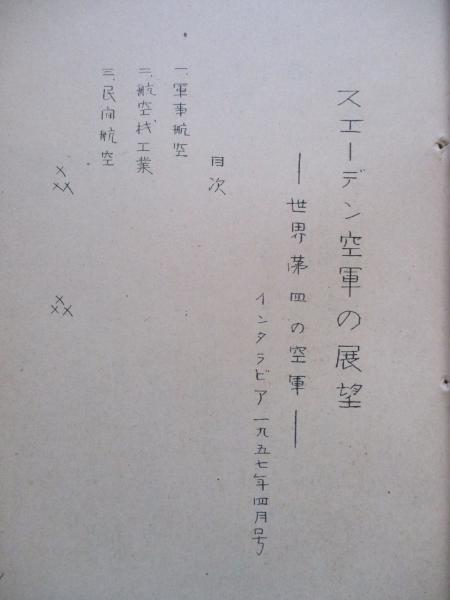 スエーデン空軍の展望
―世界第四の空軍―
インタラビア一九五七年四月号
目次
一、軍事航空
二、航空機工業
三、民間航空
×××
×××